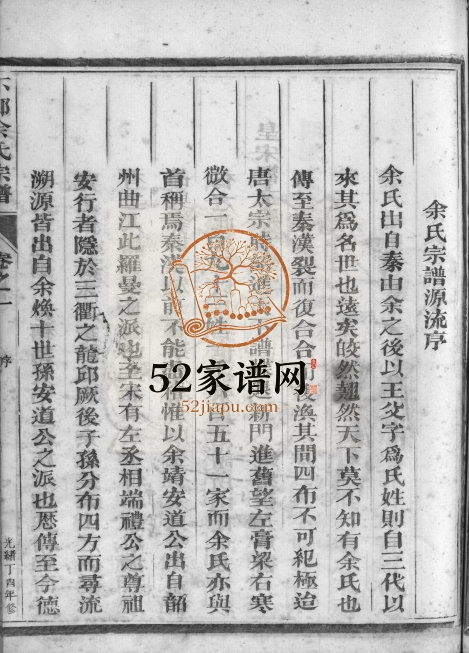 余氏宗譜源流序
余氏出自秦由余之後以王父字爲氏姓則自三代以
來其爲名世也遠矣皎然翹然天下莫不知有余氏也
傳至秦漢裂而復合合 渙其間四布不可紀極迨
唐太宗 進 譜 新門進舊望左膏粱右寒
微合二百九十三姓 五十一家而余氏亦與
首稱焉秦漢以前不能 惟以余靖安道公出自韶
州曲江此羅曼之派也至宋有左丞相端禮公之尊祖
安行者隱於三衢之龍邱厥後子孫分布四方而尋流
溯源皆出自余煥十世孫安道公之派也歷傳至今德
余氏宗譜
卷之一
序
光緒丁酉年修
52家谱网
52jiapu.com